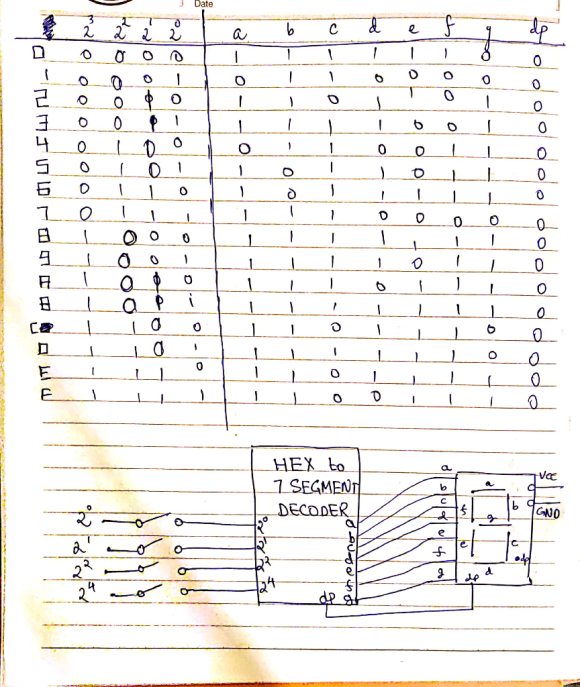 Date
2³ 2² 2¹ 2⁰ a b c d e f g dp
0 0 0 0 0 1 1 1 1 1 1 0 0
1 0 0 0 1 0 1 1 0 0 0 0 0
2 0 0 1 0 1 1 0 1 1 0 1 0
3 0 0 1 1 1 1 1 1 0 0 1 0
4 0 1 0 0 0 1 1 0 0 1 1 0
5 0 1 0 1 1 0 1 1 0 1 1 0
6 0 1 1 0 1 0 1 1 1 1 1 0
7 0 1 1 1 1 1 1 0 0 0 0 0
8 1 0 0 0 1 1 1 1 1 1 1 0
9 1 0 0 1 1 1 1 1 0 1 1 0
A 1 0 1 0 1 1 1 0 1 1 1 0
B 1 0 1 1 1 1 1 1 1 1 1 0
C 1 1 0 0 1 1 0 1 1 1 0 0
D 1 1 0 1 1 1 1 1 1 1 0 0
E 1 1 1 0 1 1 0 1 1 1 1 0
F 1 1 1 1 1 1 0 0 1 1 1 0
HEX to
7 SEGMENT
DECODER
2⁰
2¹
2²
2⁴
2⁰
2¹
2²
2⁴
a
b
c
d
e
f
g
dp
a
b
c
d
e
f
g
a
f b
g
e c
d
dp
dp
VCC
GND